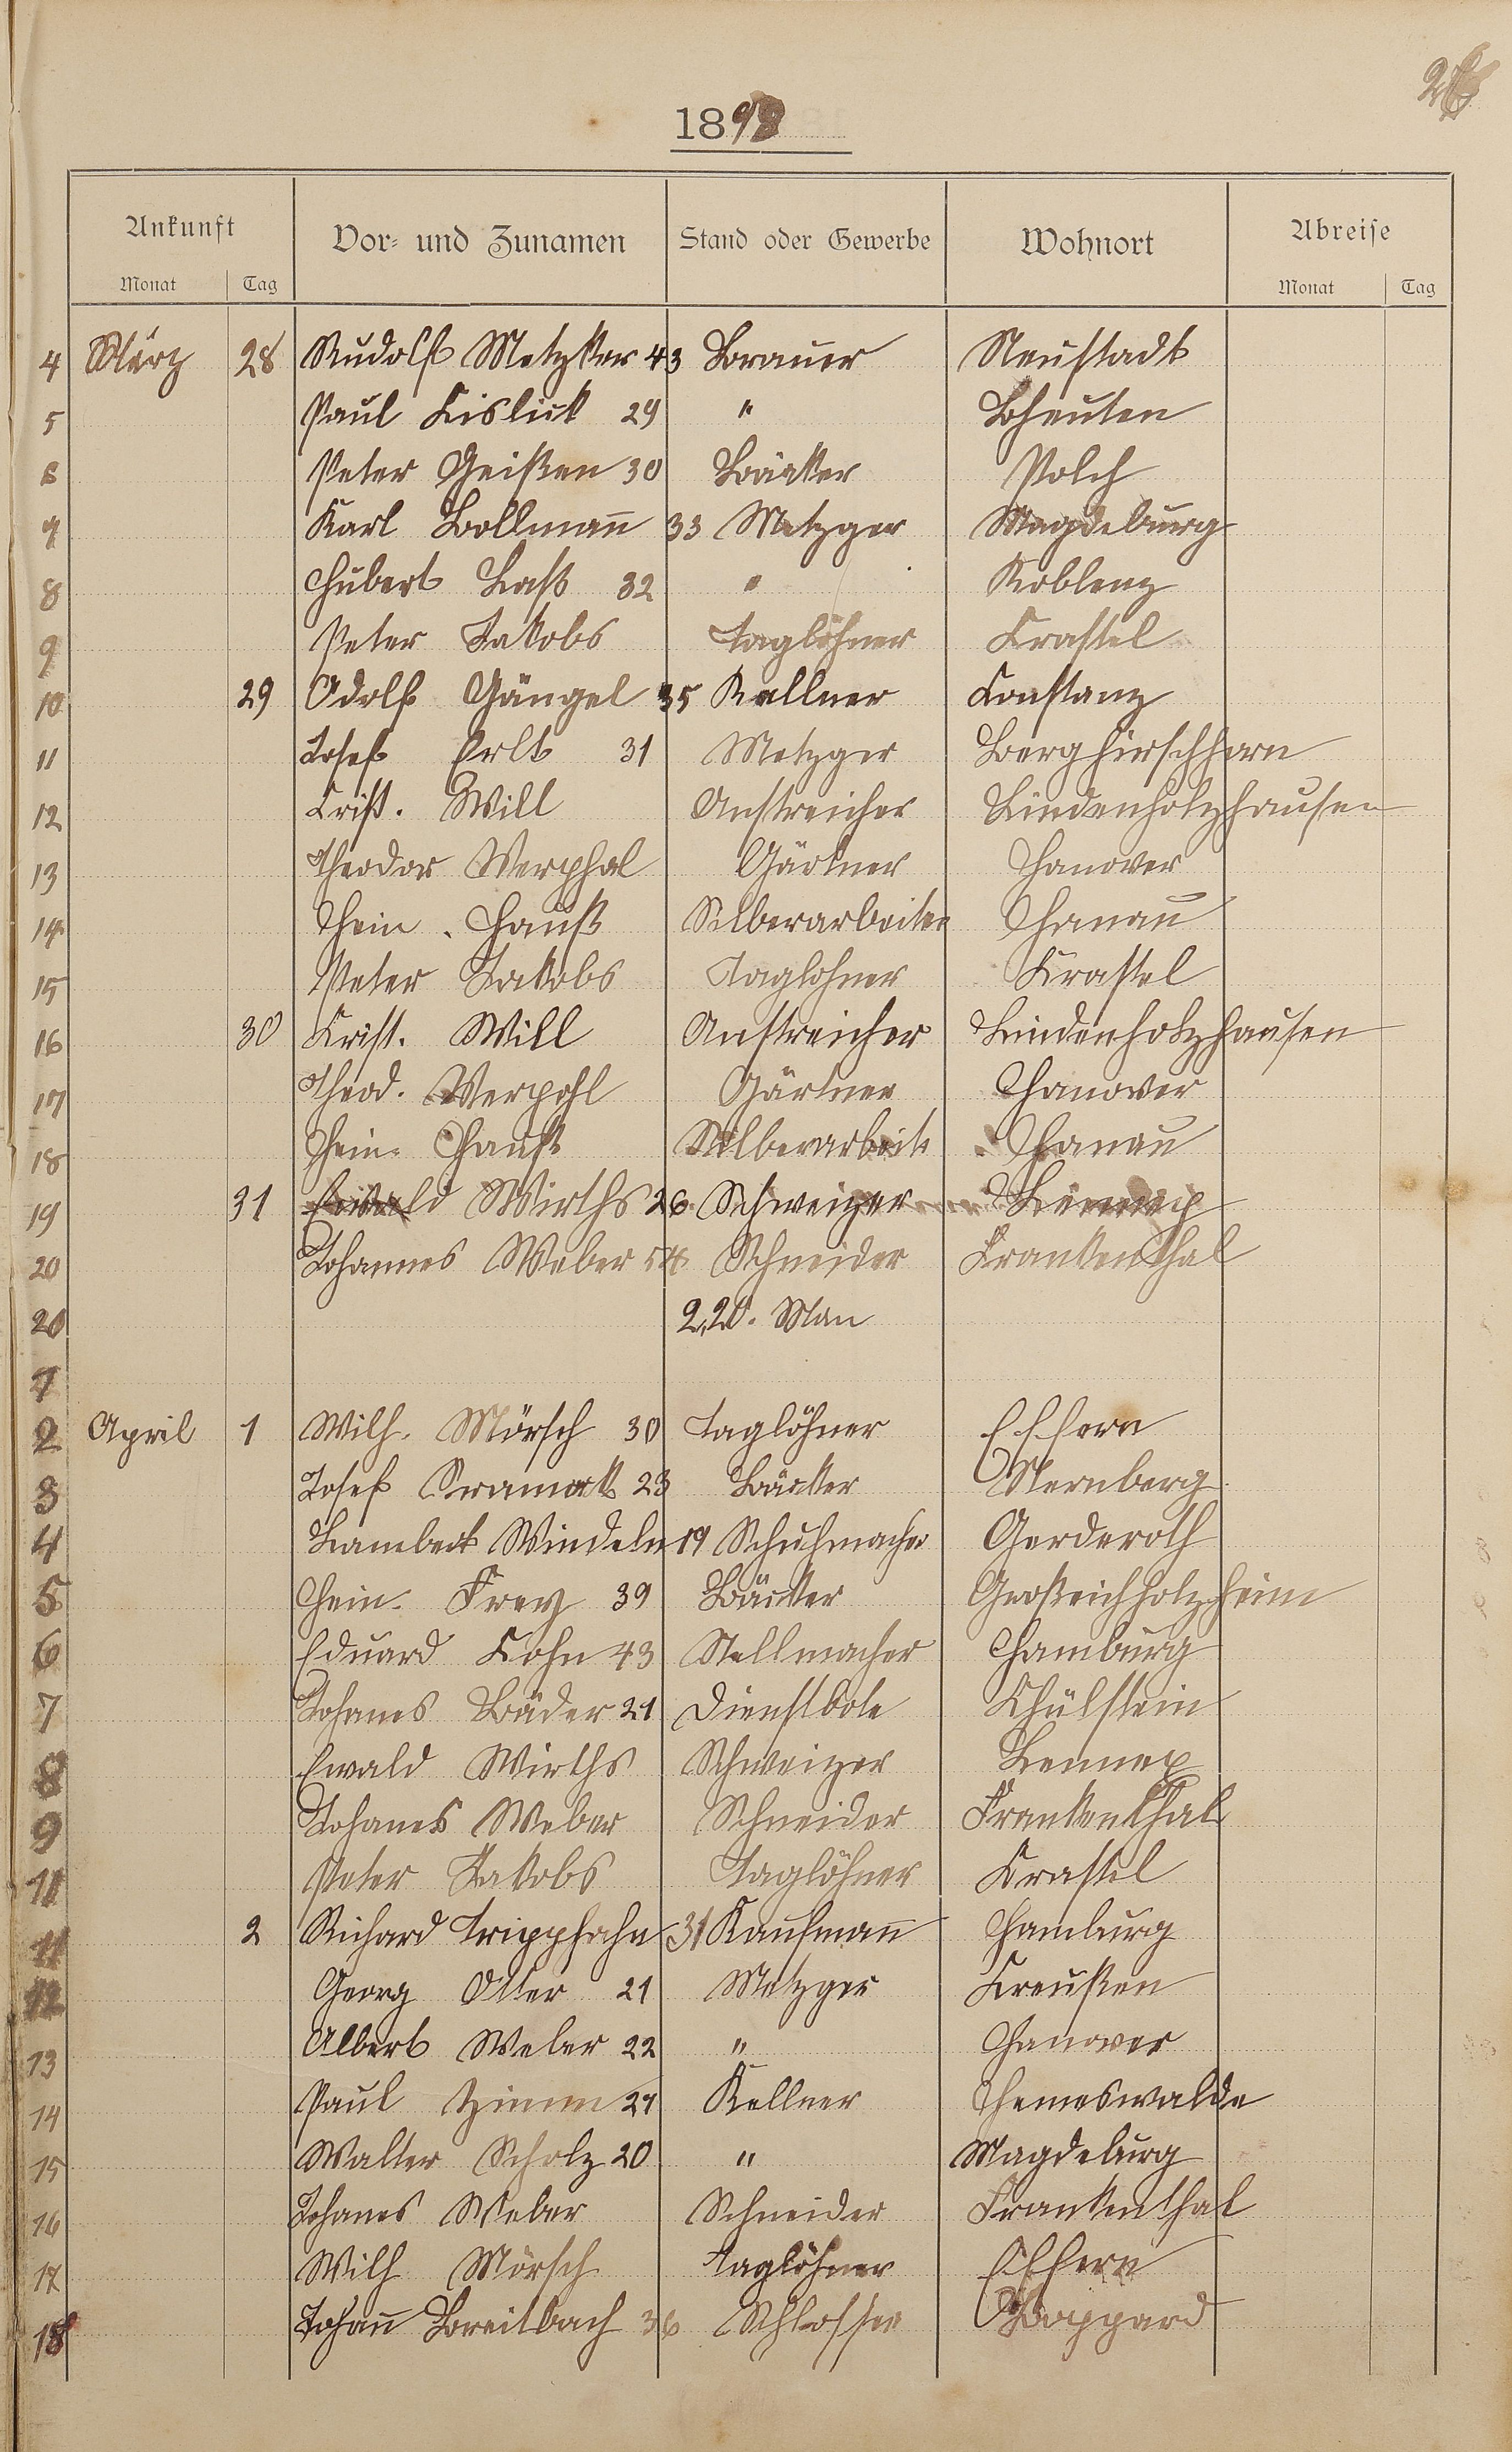 1898
Ankunft Vor- und Zunamen Stand oder Gewerbe Wohnort Abreise
Monat Tag Monat Tag
4 März 28 Rudolf Metzker 43 Brauer Neustadt
5 Paul Kislick 29 " Bheuten
6 Peter Geißen 30 Bäcker Polch
7 Karl Bollmann 33 Metzger Magdeburg
8 Hubert Baß 32 " Koblenz
9 Peter Jakobs Taglöhner Krastel
10 29 Adolf Gängel 35 Kellner Konstanz
11 Josef Erlt 31 Metzger Berghirschhorn
12 Krist. Will Anstreicher Lindenholzhausen
13 Theodor Werphal Gärtner Hanover
14 Hein. Hauß Silberarbeiter Hanau
15 Peter Jakobs Taglohner Krastel
16 30 Krist. Will Anstreicher Lindenholzhausen
17 Theod. Werpohl Gärtner Hanover
18 Hein. Hauß Silberarbeit Hanau
19 31 Ewald Wirths 26 Schweizer Lennep
20 Johannes Weber 54 Schneider Frankenthal
20 2,20. Man
1
2 April 1 Wilh. Mörsch 30 Taglöhner Effern
3 Josef 23 Bäcker Sternberg
4 Lambert Windeln 19 Schuhmacher Gerderoth
5 Hein. Frey 39 Bäcker Großeichholzheim
6 Eduard Kohn 43 Stellmacher Hamburg
7 Johanes Bäder 21 Dienstbote Khülstein
8 Ewald Wirths Schweizer Lennep
9 Johanes Weber Schneider Frankenthal
10 Peter Jakobs Taglöhner Krastel
11 2 Richard Tripphahn 31 Kaufmann Hamburg
12 Georg Otter 21 Metzger Kreußen
13 Albert Weber 22 " Hanover
14 Paul Zimm 21 Kellner Hemeswalde
15 Walter Scholz 20 " Magdeburg
16 Johanes Weber Schneider Frankenthal
17 Wilh Mörsch Taglöhner Effern
18 Johann Breitbach 36 Schlosser Boppard